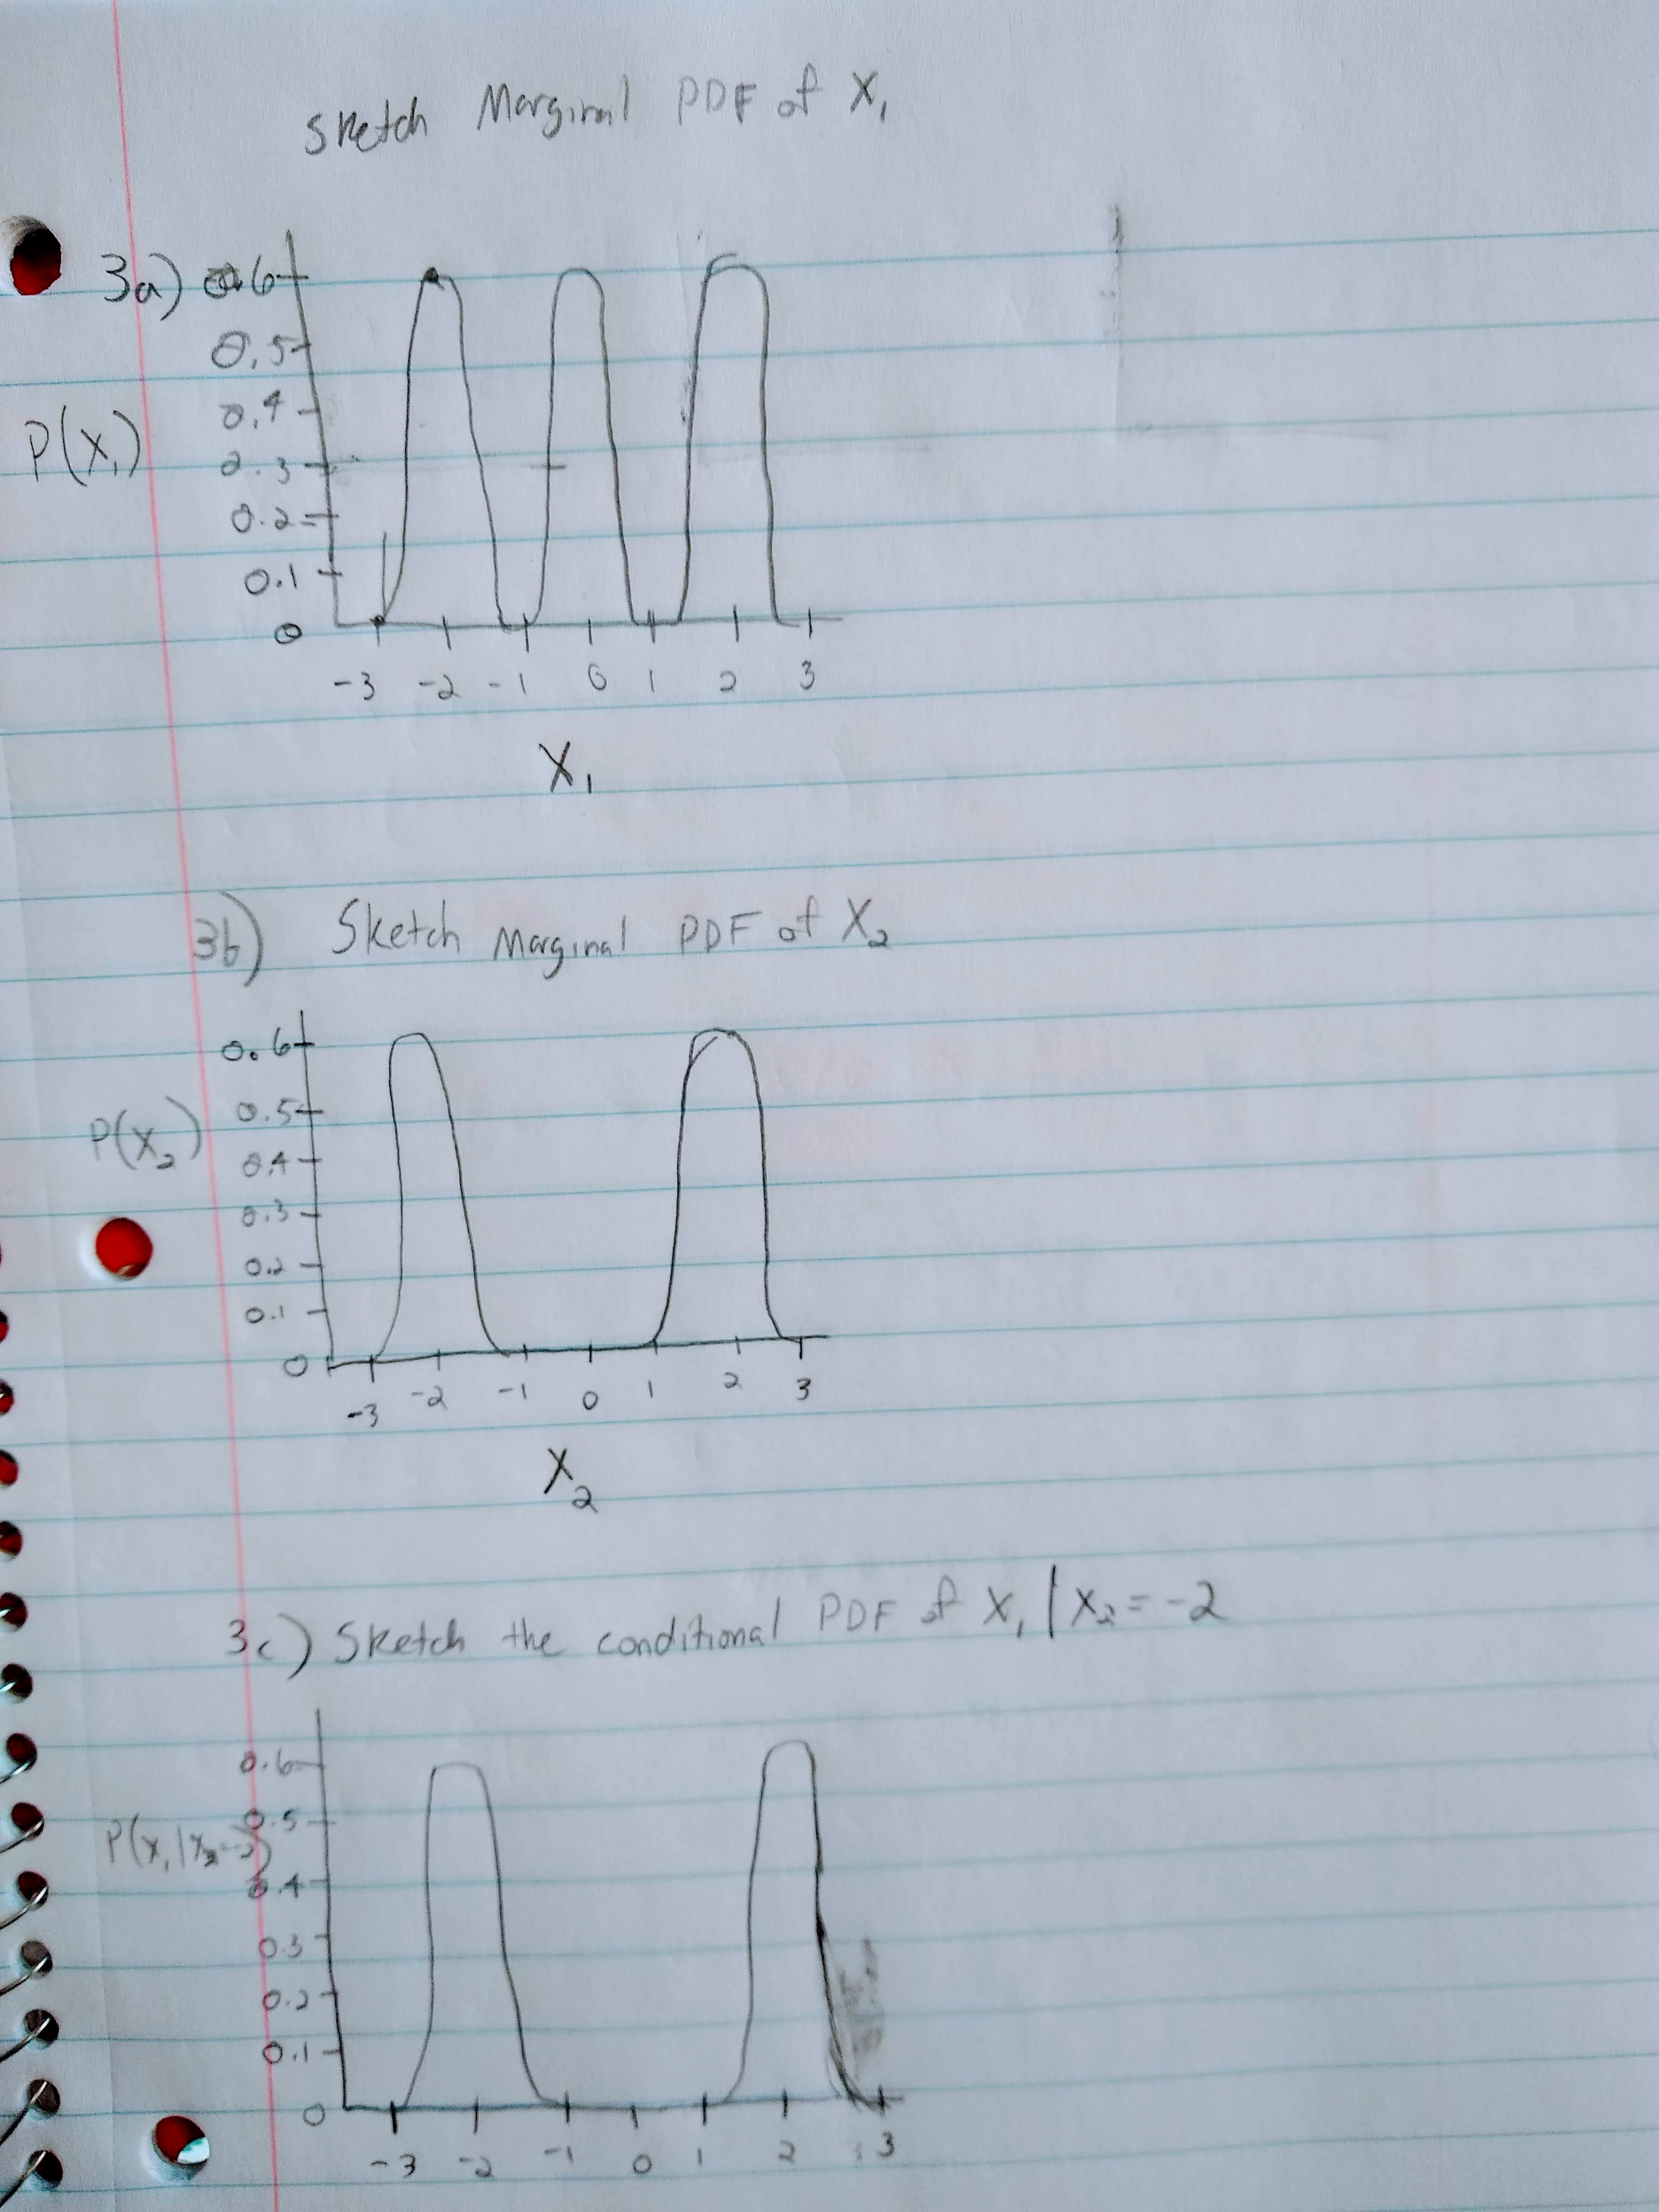 Sketch Marginal PDF of X₁
3a)
6
0.5
0.4
P(X₁)
0.3
0.2
0.1
0
-3 -2 -1 0 1 2 3
X₁
3b) Sketch Marginal PDF of X₂
0.6
P(X₂) 0.5
0.4
0.3
0.2
0.1
0
-3 -2 -1 0 1 2 3
X₂
3c) Sketch the conditional PDF of X₁ | X₂ = -2
0.6
0.5
P(X₁|X₂=-2)
0.4
0.3
0.2
0.1
0
-3 -2 -1 0 1 2 3